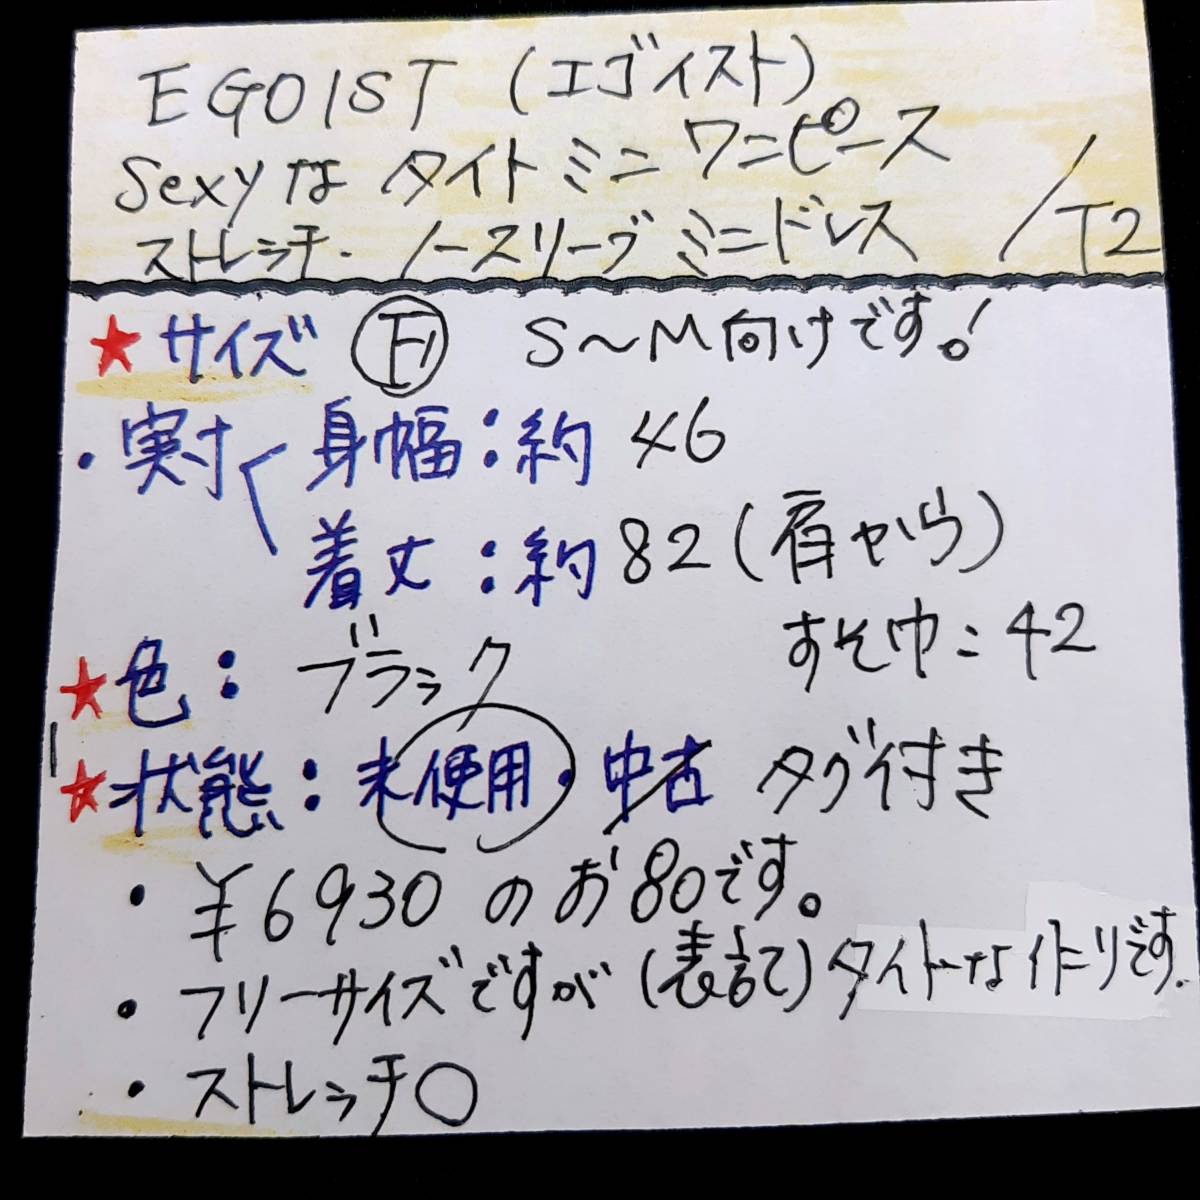 EGOIST (エゴイスト)
Sexyな タイト ミニ ワンピース
ストレッチ・ノースリーブ ミニドレス /T2
★サイズ Ⓕ S〜M向けです!
・実寸 身幅:約 46
着丈:約 82(肩から)
すそ巾:42
★色:ブラック
★状態:未使用・中古 タグ付き
・¥6930 のお80です。
・フリーサイズですが(表記)タイトな作りです.
・ストレッチ○